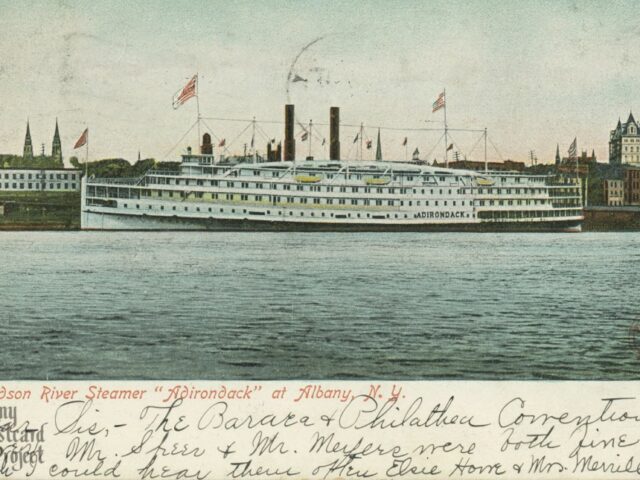 ADIRONDACK
dson River Steamer "Adirondack" at Albany, N. Y.
ar Sis,- The Baraca & Philathea Convention
Mr. Speer & Mr. Meyers were both fine
I could hear them often Elsie Howe & Mrs. Merrill
ny
stcard
Project